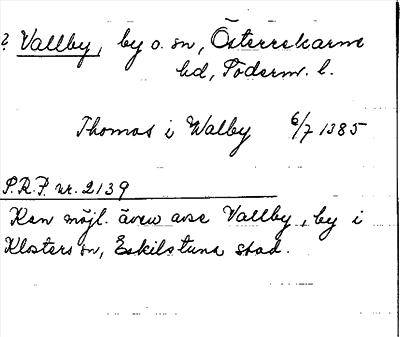 ? Vallby, by o. sn, Österrekarne
hd, Söderm. l.
Thomas i Walby 6/7 1385
S.R.P. nr. 2139
Kan möjl. även avse Vallby, by i
Klosters sn, Eskilstuna stad.